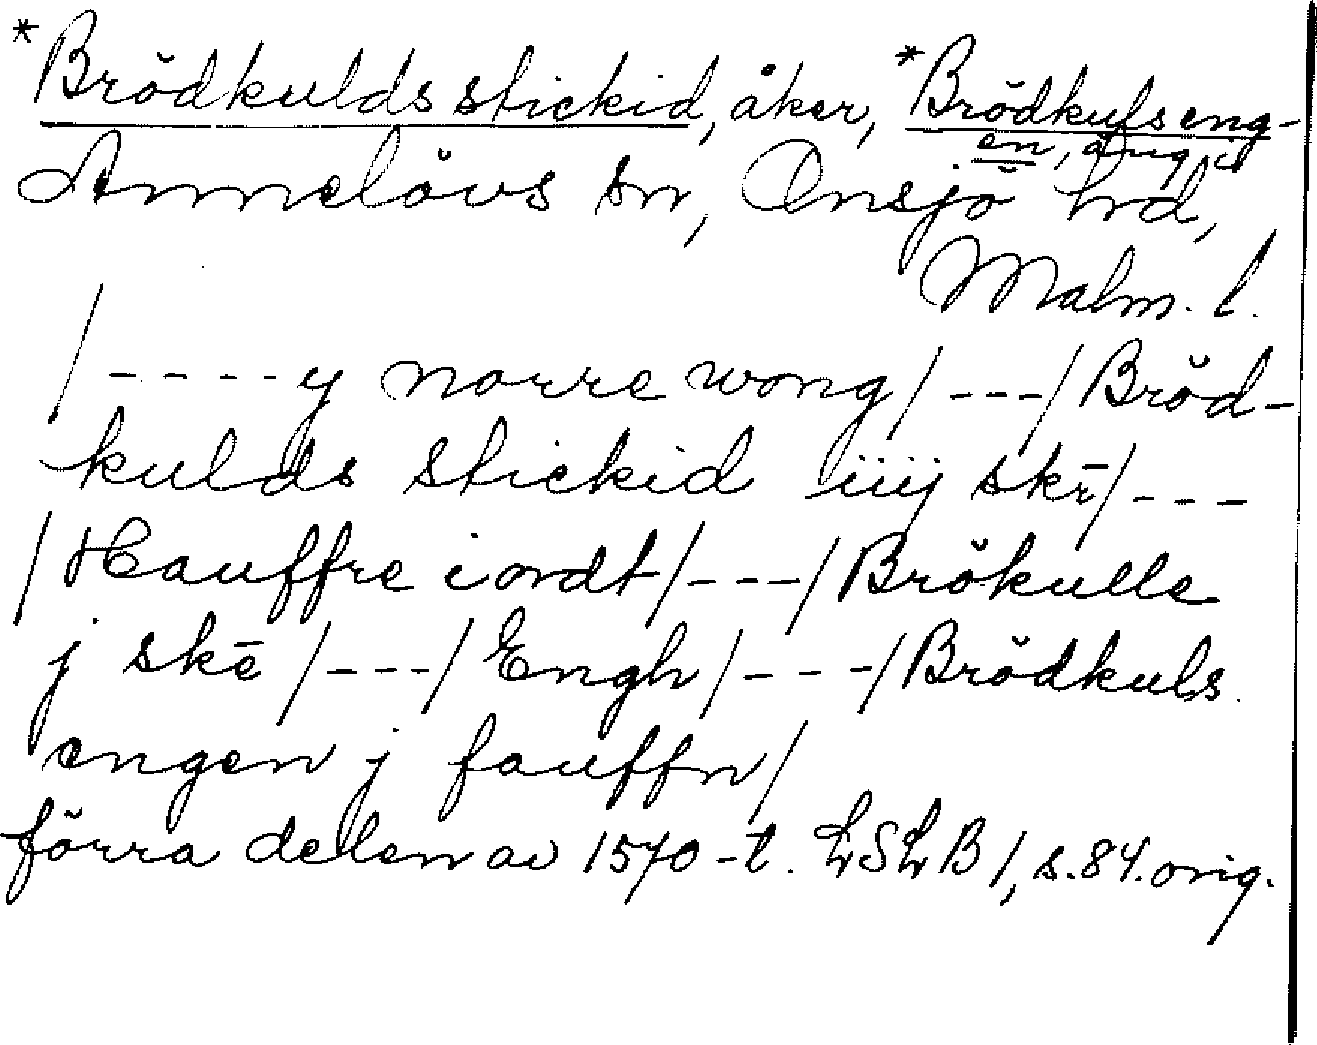 *Brödkulds stickid, åker, *Brödkulseng-
en, äng i
Annelövs sn, Onsjö hrd,
Malm. l.
/----y norre wong/---/Bröd-
kulds stickid iiij skē/---
/Hauffre iordt/---/Brökulle
j skē/---/Engh/---/Brödkuls
engen j fauffn/
förra delen av 1570-t. LSLB 1, s. 84. orig.